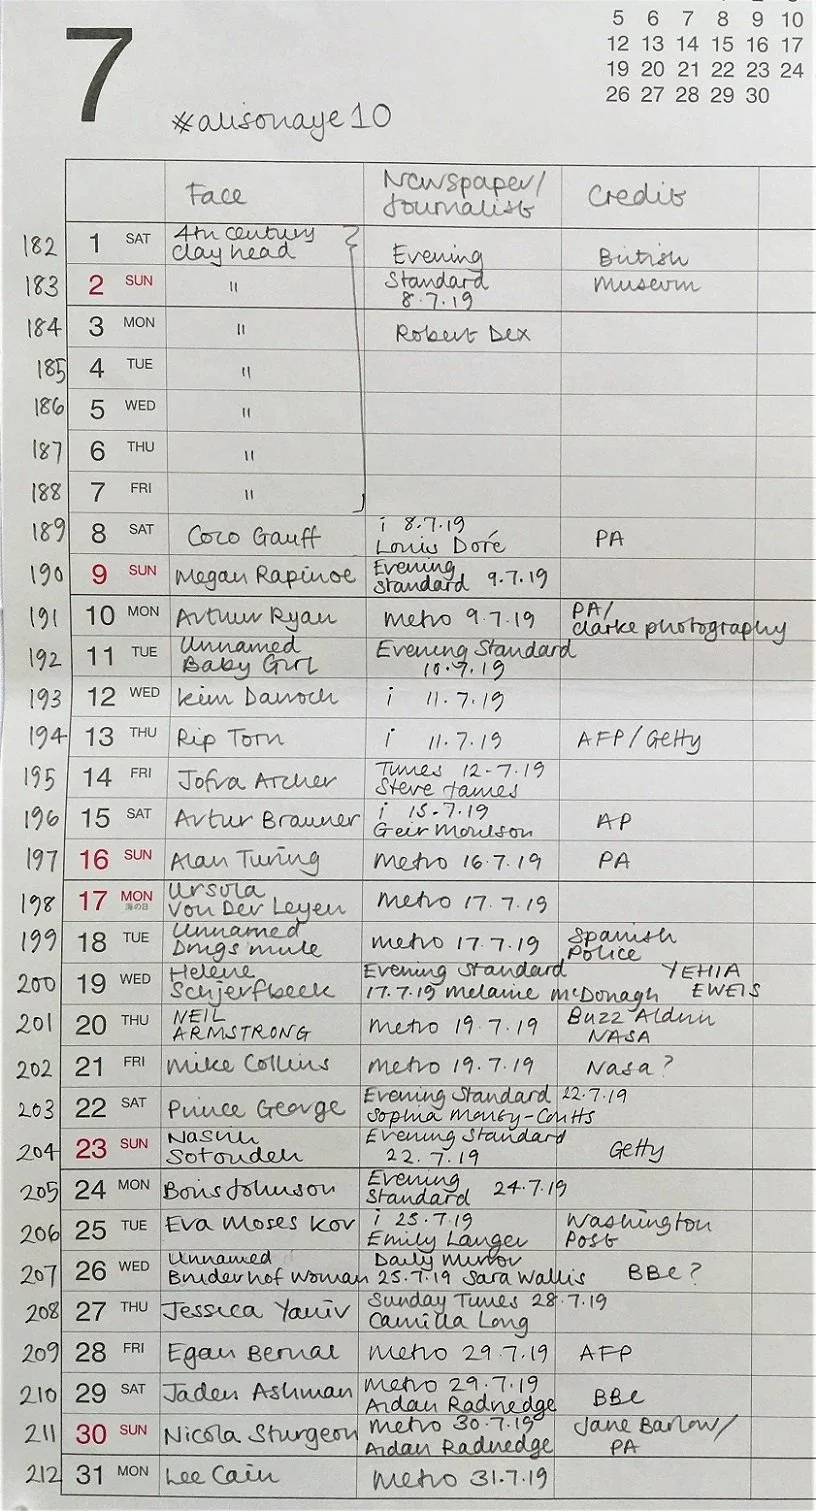 7
5 6 7 8 9 10
12 13 14 15 16 17
19 20 21 22 23 24
26 27 28 29 30
#alisonaye10
Face Newspaper/ Journalist Credit
182 1 SAT 4th century clay head Evening British
183 2 SUN " Standard 8.7.19 Museum
184 3 MON " Robert Dex
185 4 TUE "
186 5 WED "
187 6 THU "
188 7 FRI "
189 8 SAT Coco Gauff i 8.7.19 Louis Doré PA
190 9 SUN Megan Rapinoe Evening Standard 9.7.19
191 10 MON Arthur Ryan Metro 9.7.19 PA/ Clarke photography
192 11 TUE Unnamed Baby Girl Evening Standard 10.7.19
193 12 WED Kim Darroch i 11.7.19
194 13 THU Rip Torn i 11.7.19 AFP/Getty
195 14 FRI Jofra Archer Times 12.7.19 Steve James
196 15 SAT Artur Brauner i 15.7.19 Geir Moulson AP
197 16 SUN Alan Turing Metro 16.7.19 PA
198 17 MON 海の日 Ursula Von Der Leyen Metro 17.7.19
199 18 TUE Unnamed Drugs mule Metro 17.7.19 Spanish Police
200 19 WED Helene Schjerfbeck Evening Standard 17.7.19 Melanie McDonagh YEHIA EWEIS
201 20 THU NEIL ARMSTRONG Metro 19.7.19 Buzz Aldrin NASA
202 21 FRI Mike Collins Metro 19.7.19 Nasa?
203 22 SAT Prince George Evening Standard 22.7.19 Sophia Money-Coutts
204 23 SUN Nasrin Sotoudeh Evening Standard 22.7.19 Getty
205 24 MON Boris Johnson Evening Standard 24.7.19
206 25 TUE Eva Moses Kor i 25.7.19 Emily Langer Washington Post
207 26 WED Unnamed Bruderhof woman Daily Mirror 25.7.19 Sara Wallis BBC?
208 27 THU Jessica Yaniv Sunday Times 28.7.19 Camilla Long
209 28 FRI Egan Bernal Metro 29.7.19 AFP
210 29 SAT Jaden Ashman Metro 29.7.19 Aidan Radnedge BBC
211 30 SUN Nicola Sturgeon Metro 30.7.19 Aidan Radnedge Jane Barlow/ PA
212 31 MON Lee Cain Metro 31.7.19